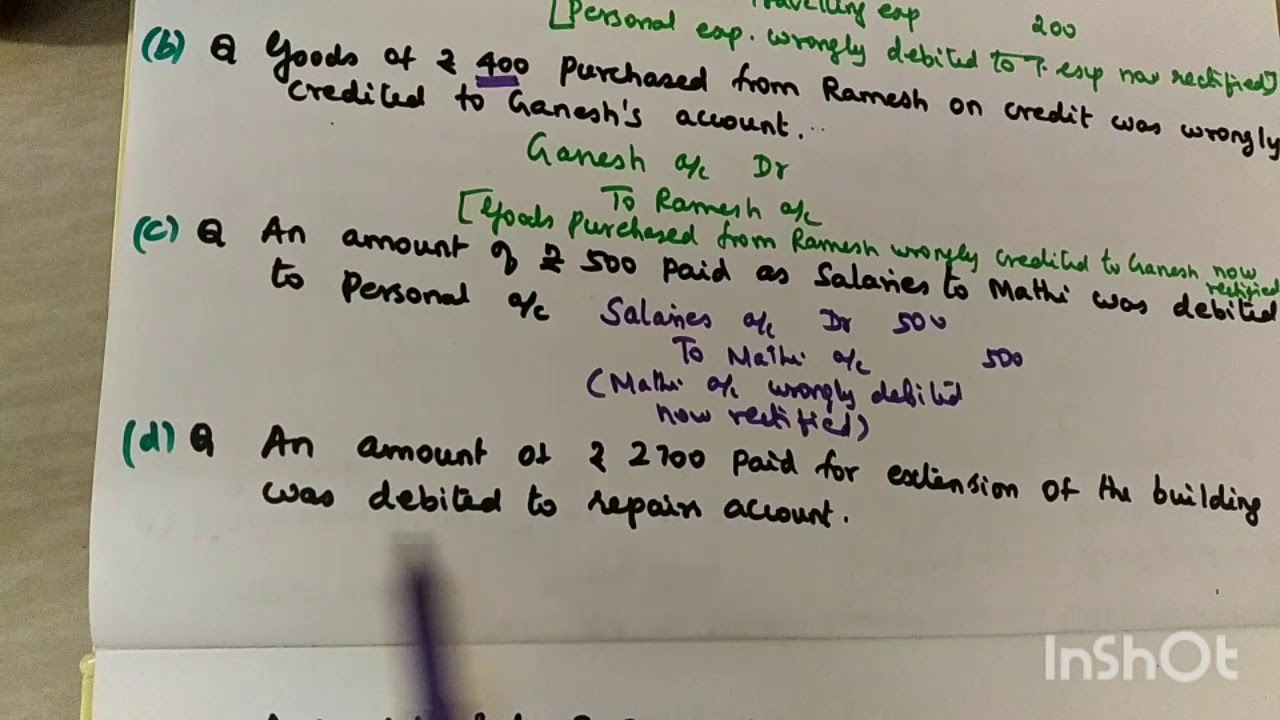 Travelling exp 200
[Personal exp. wrongly debited to T. exp now rectified]
(b) Q Goods of ₹ 400 purchased from Ramesh on credit was wrongly
credited to Ganesh's account.
Ganesh a/c Dr
To Ramesh a/c
[Goods purchased from Ramesh wrongly credited to Ganesh now
rectified
(c) Q An amount of ₹ 500 paid as Salaries to Mathi was debited
to Personal a/c
Salaries a/c Dr 500
To Mathi a/c 500
(Mathi a/c wrongly debited
now rectified)
(d) Q An amount of ₹ 2700 paid for extension of the building
was debited to repairs account.
InShOt